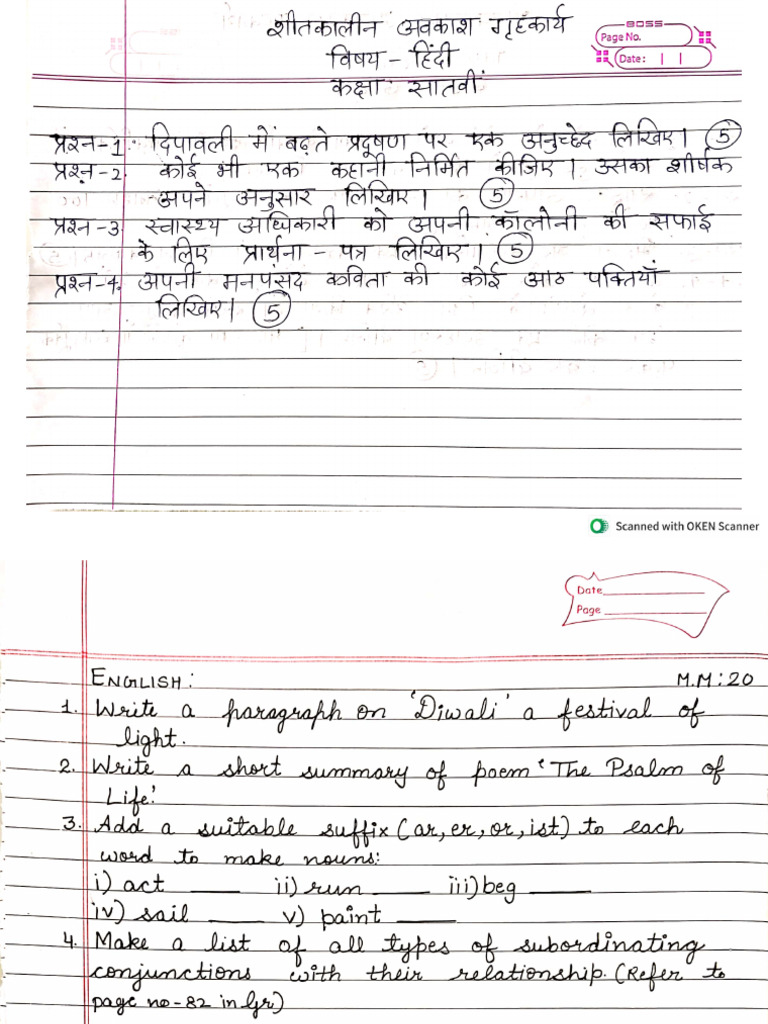 शीतकालीन अवकाश गृहकार्य
BOSS
Page No.
Date: | |
विषय - हिंदी
कक्षा सातवीं
प्रश्न-1. दिपावली में बढ़ते प्रदूषण पर एक अनुच्छेद लिखिए। 5
प्रश्न-2. कोई भी एक कहानी निर्मित कीजिए। उसका शीर्षक
अपने अनुसार लिखिए। 5
प्रश्न-3. स्वास्थ्य अधिकारी को अपनी कॉलोनी की सफाई
के लिए प्रार्थना - पत्र लिखिए। 5
प्रश्न-4. अपनी मनपसंद कविता की कोई आठ पंक्तियाँ
लिखिए। 5
Scanned with OKEN Scanner
Date
Page
ENGLISH: M.M:20
1. Write a paragraph on 'Diwali' a festival of
light.
2. Write a short summary of poem 'The Psalm of
Life'.
3. Add a suitable suffix (ar, er, or, ist) to each
word to make nouns:
i) act ____ ii) run ____ iii) beg ____
iv) sail ____ v) paint ____
4. Make a list of all types of subordinating
conjunctions with their relationship. (Refer to
page no-82 in Gr)